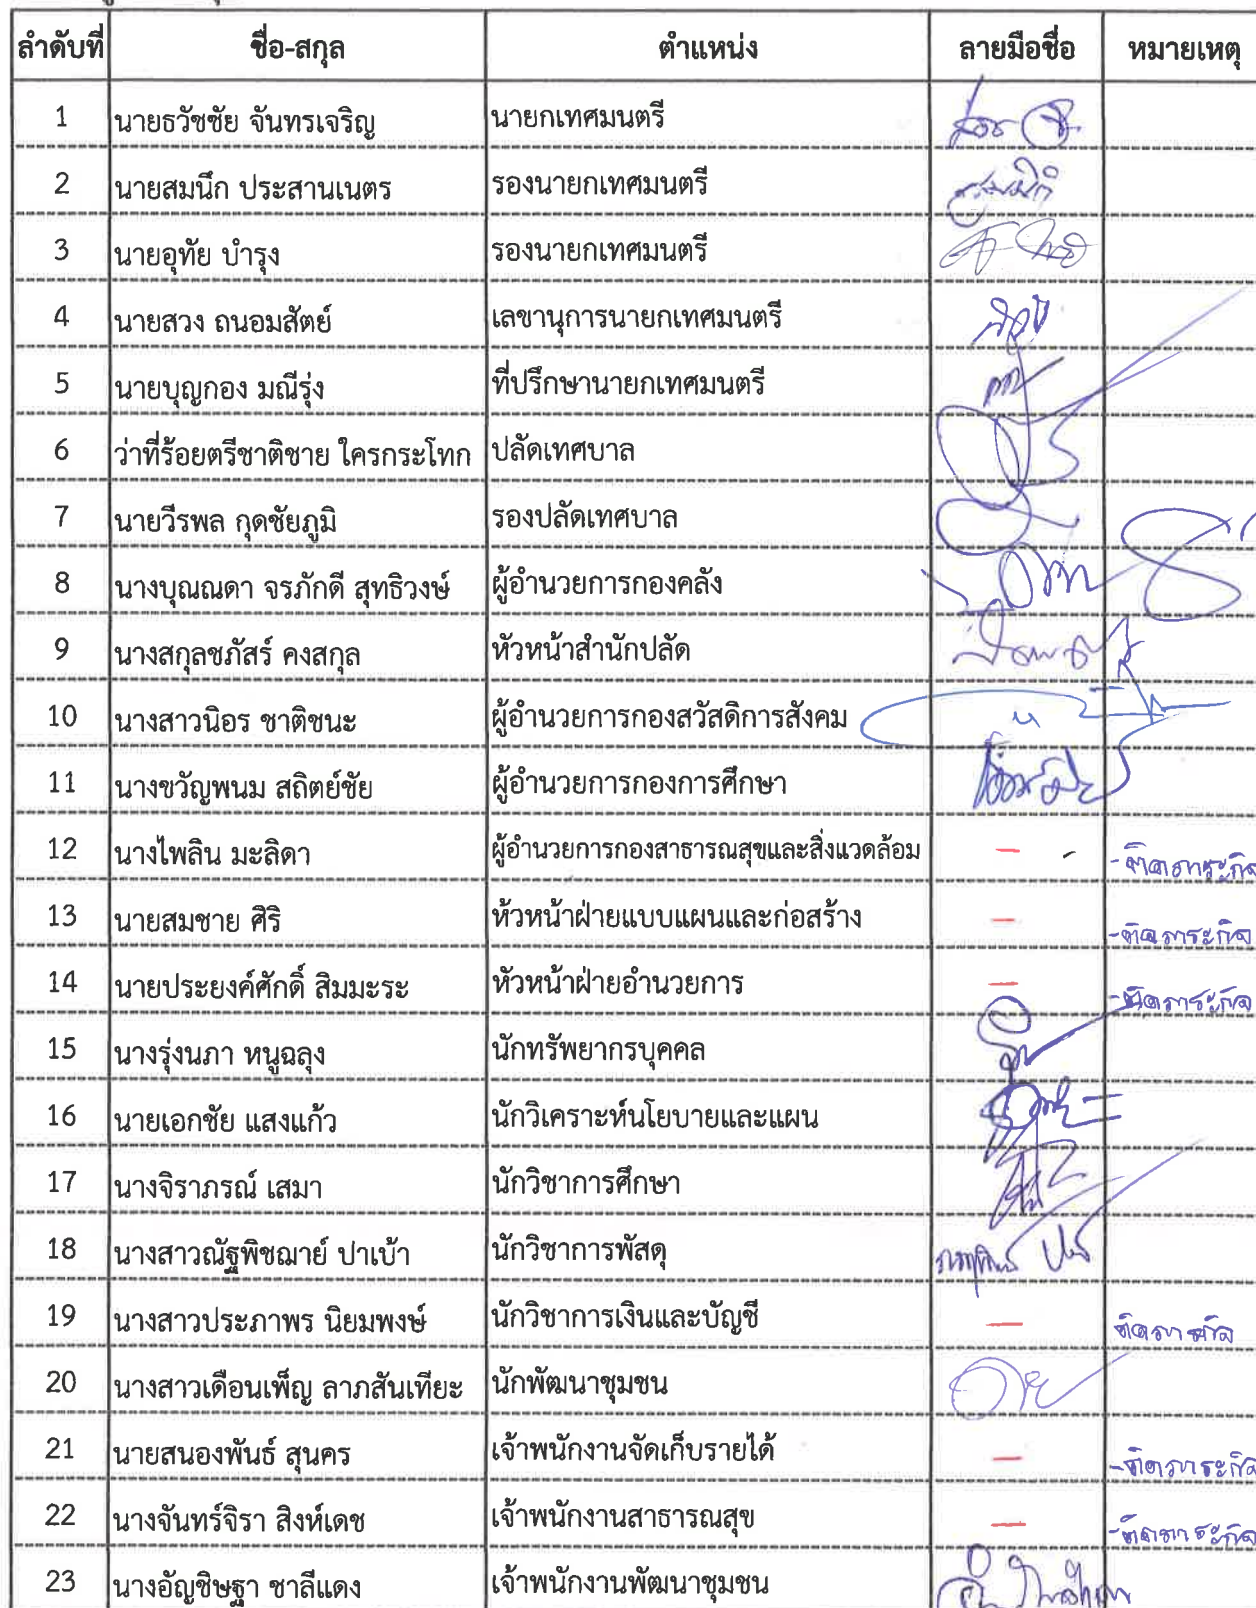 ลำดับที่ ชื่อ-สกุล ตำแหน่ง ลายมือชื่อ หมายเหตุ
1 นายธวัชชัย จันทรเจริญ นายกเทศมนตรี
2 นายสมนึก ประสานเนตร รองนายกเทศมนตรี
3 นายอุทัย บำรุง รองนายกเทศมนตรี
4 นายสวง ถนอมสัตย์ เลขานุการนายกเทศมนตรี
5 นายบุญกอง มณีรุ่ง ที่ปรึกษานายกเทศมนตรี
6 ว่าที่ร้อยตรีชาติชาย ใครกระโทก ปลัดเทศบาล
7 นายวีรพล กุดชัยภูมิ รองปลัดเทศบาล
8 นางบุณณดา จรภักดี สุทธิวงษ์ ผู้อำนวยการกองคลัง
9 นางสกุลชภัสร์ คงสกุล หัวหน้าสำนักปลัด
10 นางสาวนิอร ชาติชนะ ผู้อำนวยการกองสวัสดิการสังคม
11 นางขวัญพนม สถิตย์ชัย ผู้อำนวยการกองการศึกษา
12 นางไพลิน มะลิดา ผู้อำนวยการกองสาธารณสุขและสิ่งแวดล้อม - - ติดภาระกิจ
13 นายสมชาย ศิริ หัวหน้าฝ่ายแบบแผนและก่อสร้าง - - ติดภาระกิจ
14 นายประยงค์ศักดิ์ สิมมะระ หัวหน้าฝ่ายอำนวยการ - - ติดภาระกิจ
15 นางรุ่งนภา หนูฉลุง นักทรัพยากรบุคคล
16 นายเอกชัย แสงแก้ว นักวิเคราะห์นโยบายและแผน
17 นางจิราภรณ์ เสมา นักวิชาการศึกษา
18 นางสาวณัฐพิชฌาย์ ปาเบ้า นักวิชาการพัสดุ
19 นางสาวประภาพร นิยมพงษ์ นักวิชาการเงินและบัญชี -
20 นางสาวเดือนเพ็ญ ลาภสันเทียะ นักพัฒนาชุมชน
21 นายสนองพันธ์ สุนคร เจ้าพนักงานจัดเก็บรายได้ - - ติดภาระกิจ
22 นางจันทร์จิรา สิงห์เดช เจ้าพนักงานสาธารณสุข - - ติดภาระกิจ
23 นางอัญชิษฐา ชาลีแดง เจ้าพนักงานพัฒนาชุมชน